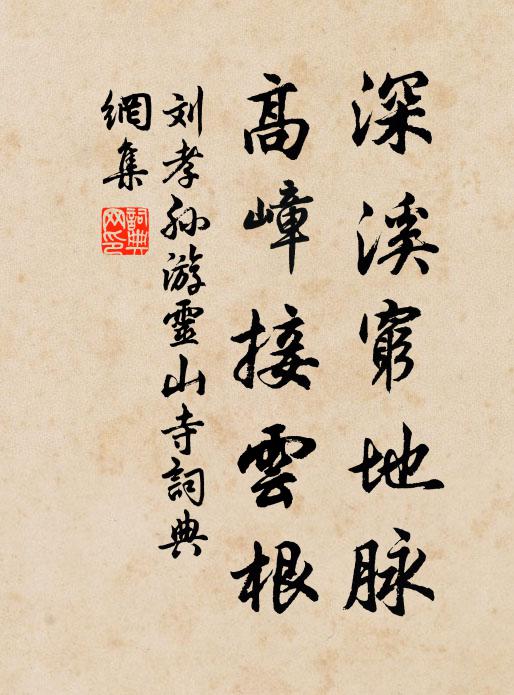 深溪窮地脉
高嶂接雲根
刘孝孙游靈山寺詞典
網集
詞典網印